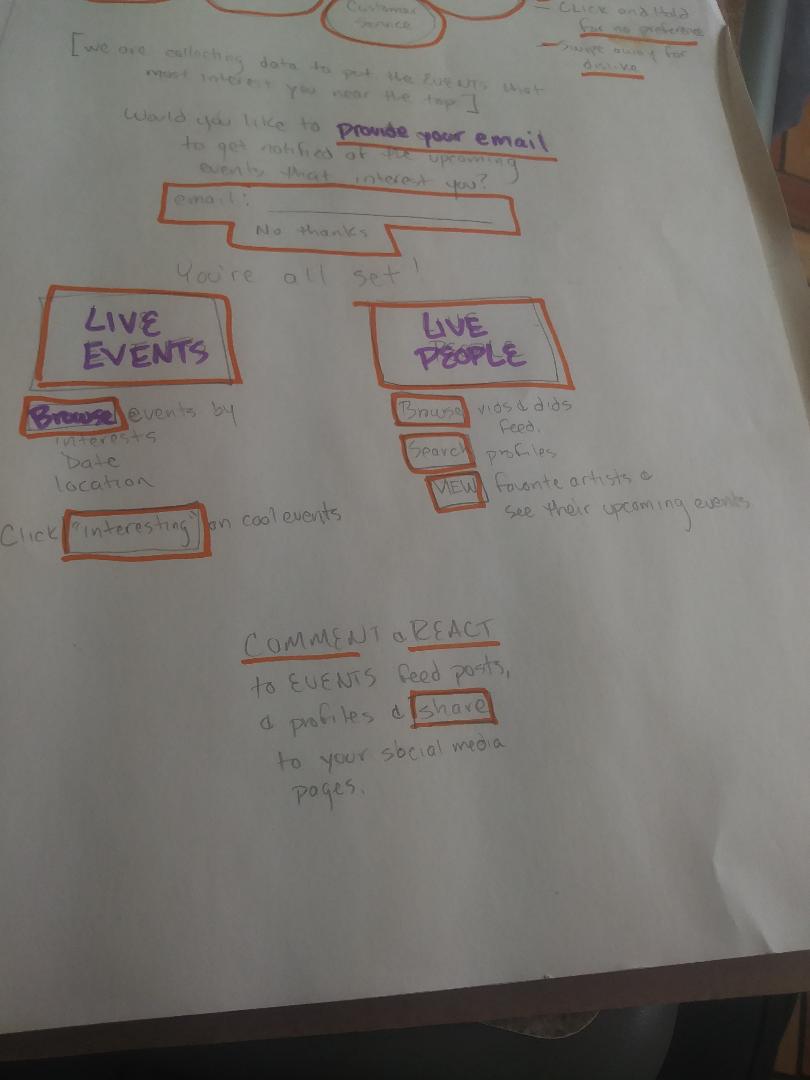 Customer
Service
— Click and Hold
for no preference
— Swipe away for
dislike
[we are collecting data to put the EVENTS that
most interest you near the top.]
Would you like to provide your email
to get notified of the upcoming
events that interest you?
email:
No thanks
You're all set!
LIVE
EVENTS
Browse events by
interests
Date
location
Click "interesting" on cool events
LIVE
PEOPLE
Browse vids & dids
feed.
Search profiles
VIEW favorite artists &
see their upcoming events
COMMENT & REACT
to EVENTS feed posts,
& profiles & share
to your social media
pages.